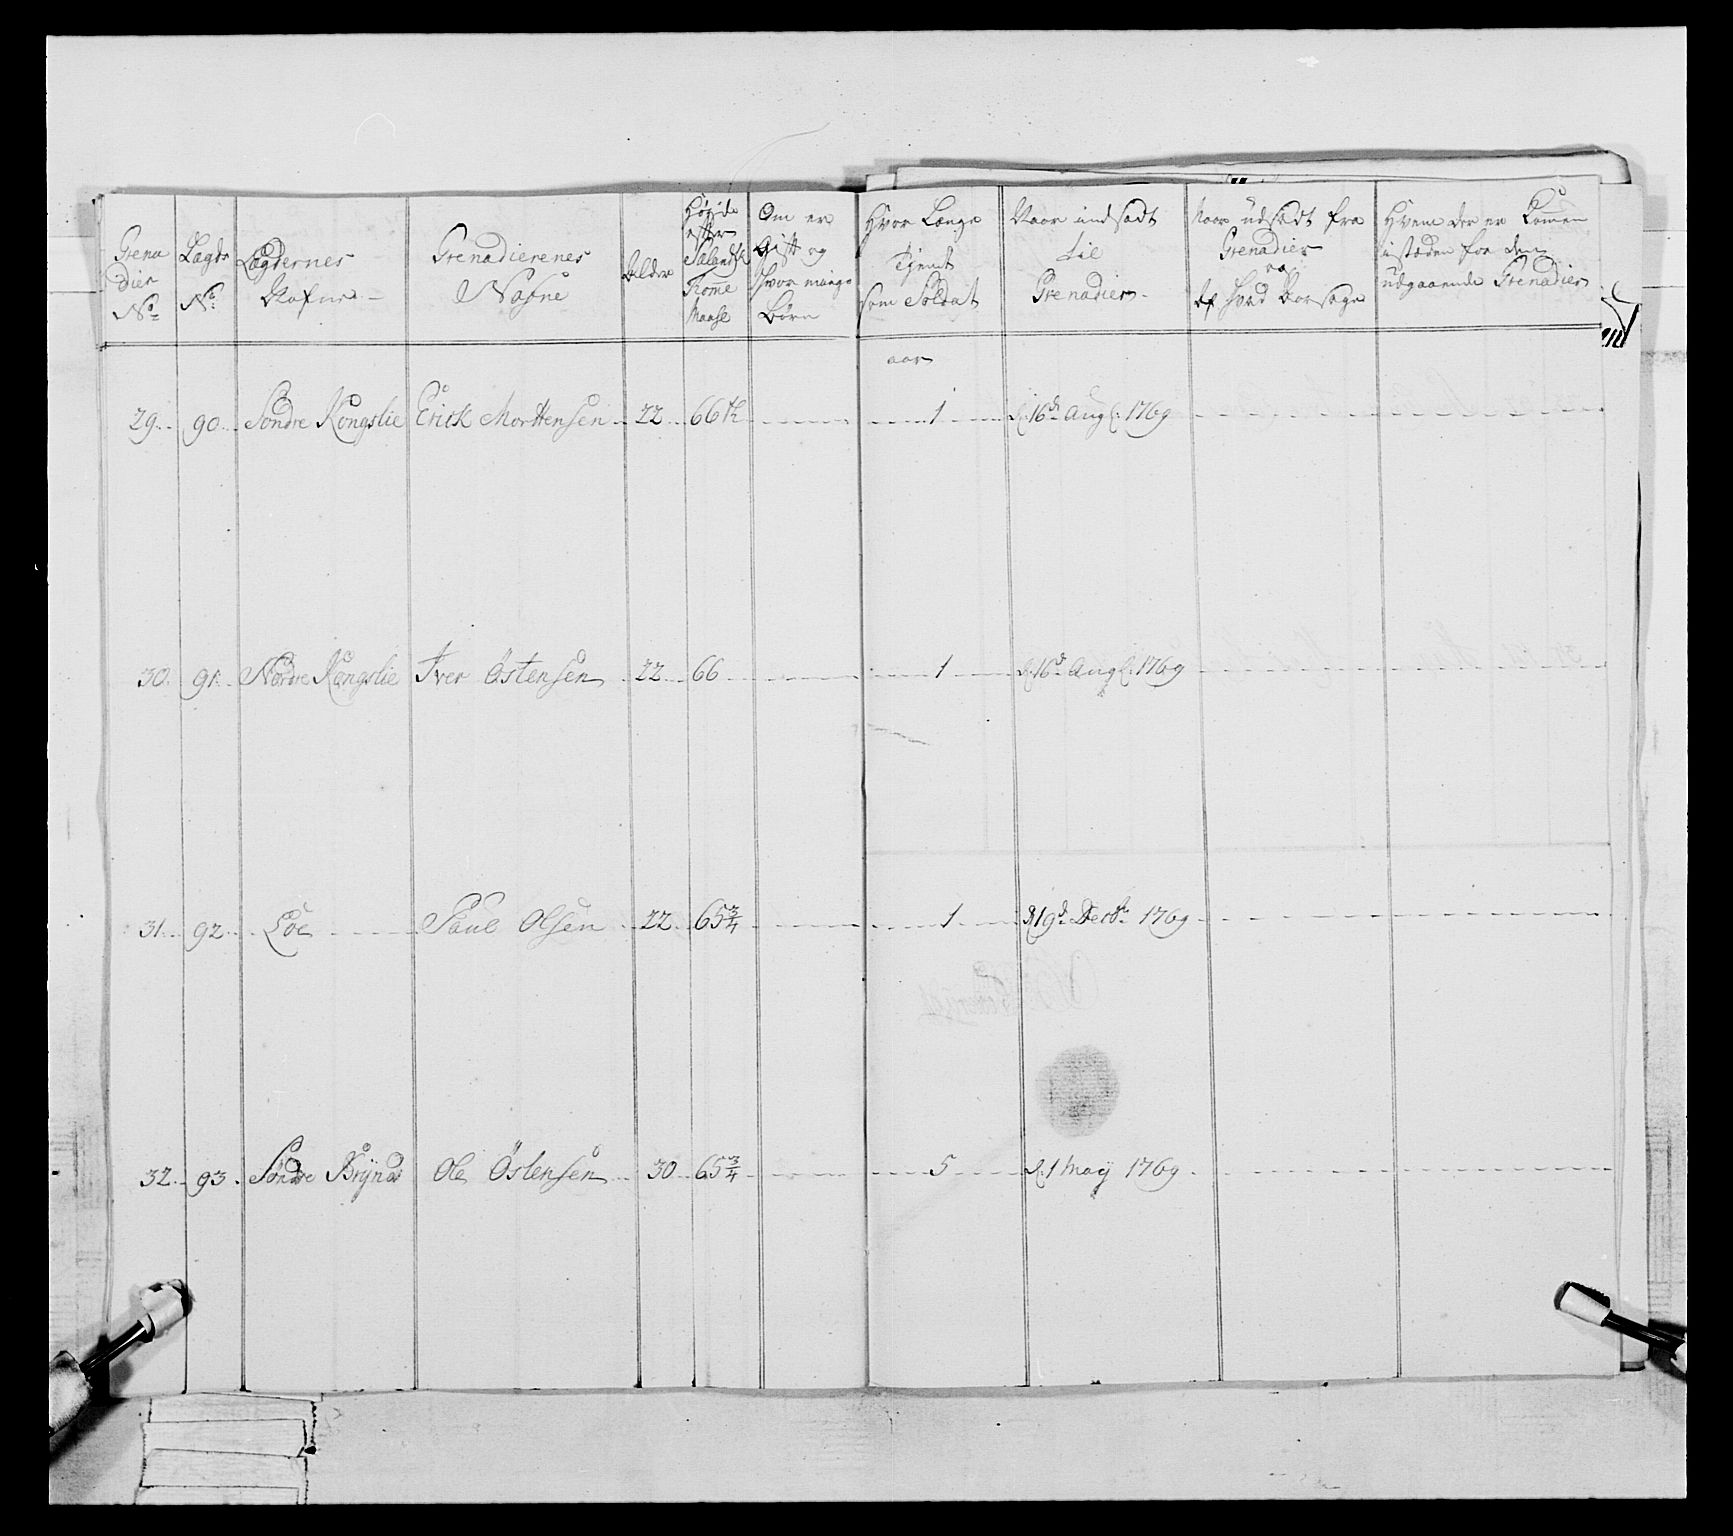 Grena
dier
No
Lægds
No
Lægdernes
Nafne
Grenadierenes
Nafne
Alder
Høyde
efter
Sælandsk
Tomme
Maal
Om er
Gift og
hvor mange
Børn
Hvor Længe
Tjendt
som Soldat
Naar indsadt
til
Grenadier
Naar udsadt fra
Grenadier
og
af hvad Aarsage
Hvem der er Komen
istæden for den
udgaaende Grenadier
aar
29 90 Søndre Kongslie Erick Morttensen 22 66 1 d. 16d Aug. 1769
30 91 Nordre Kongslie Iver Østensen 22 66 1 d. 16d Aug. 1769
31 92 Loe Paul Olsen 22 65 3/4 1 d. 19d Decbr 1769
32 93 Søndre Brÿnas Ole Østensen 30 65 3/4 5 d. 1 Maÿ 1769